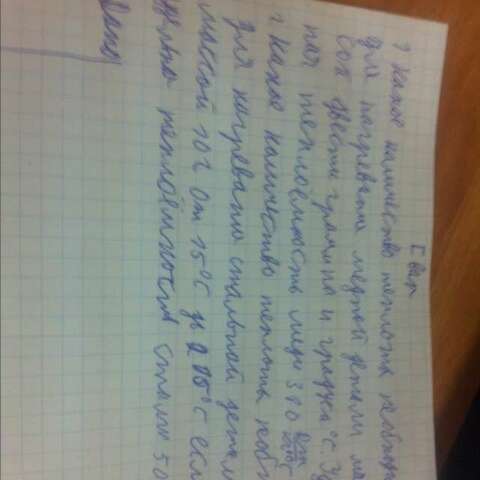 I вар
1 Какое количество теплоты необходи
для нагревания медной детали ма
сой двести грамм на 4 градуса °C. У
ная теплоёмкость меди 380
2 Какое количество теплоты необ
для нагревания стальной детал
массой 20 г от 15°C до 215°C если
удельная теплоёмкость стали 50
Дано